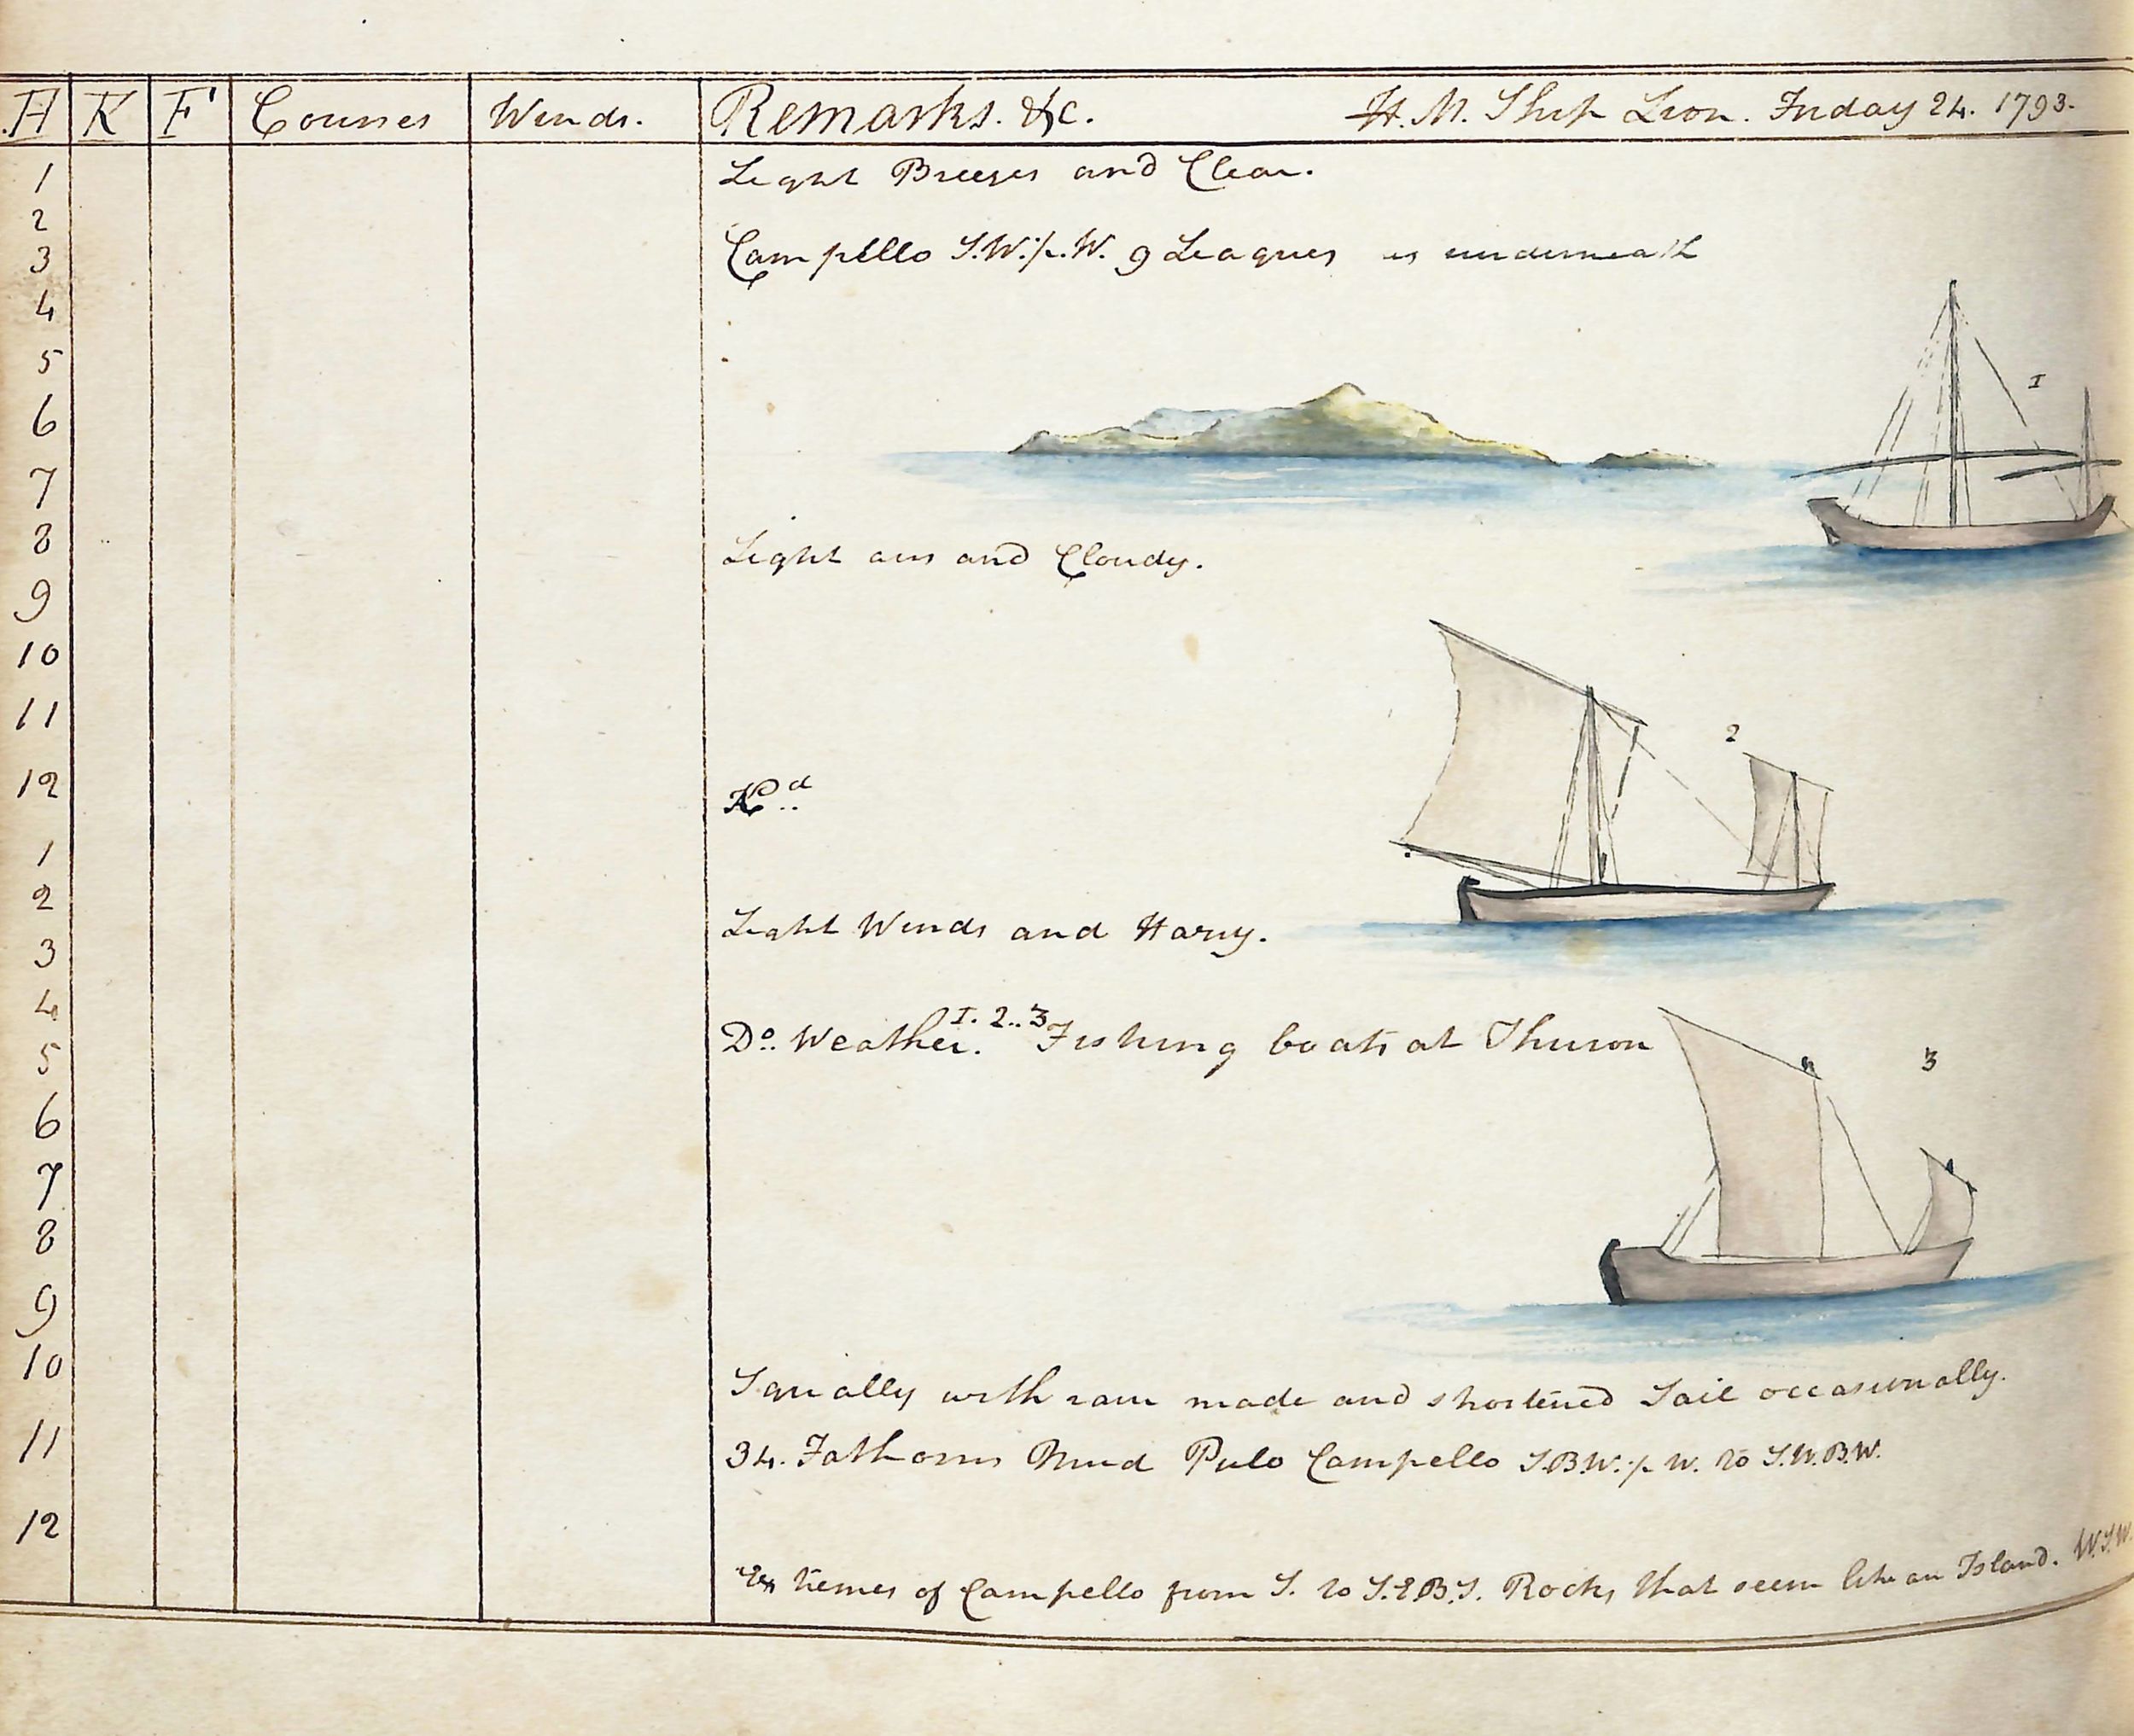 H K F Courses Winds. Remarks. &c. H. M. Ship Lion. Friday 24. 1793.
1 Light Breezes and Clear.
2
3 Campello S.W.½.W. 9 Leagues as underneath
4
5
I
6
7
8 Light airs and Cloudy.
9
10
11
2
12 Do
1
2 Light Winds and Hazy.
3
4 Do. Weather. I. 2.. 3 Fishing boats at Thuron
5 3
6
7
8
9
10 Squally with rain made and shortened Sail occasionally.
11 34. Fathoms Mud Pulo Campello S.B.W.½ W. to S.W.B.W.
12
Extremes of Campello from S. to S.E.B.S. Rocks that seem like an Island. W.S.W.